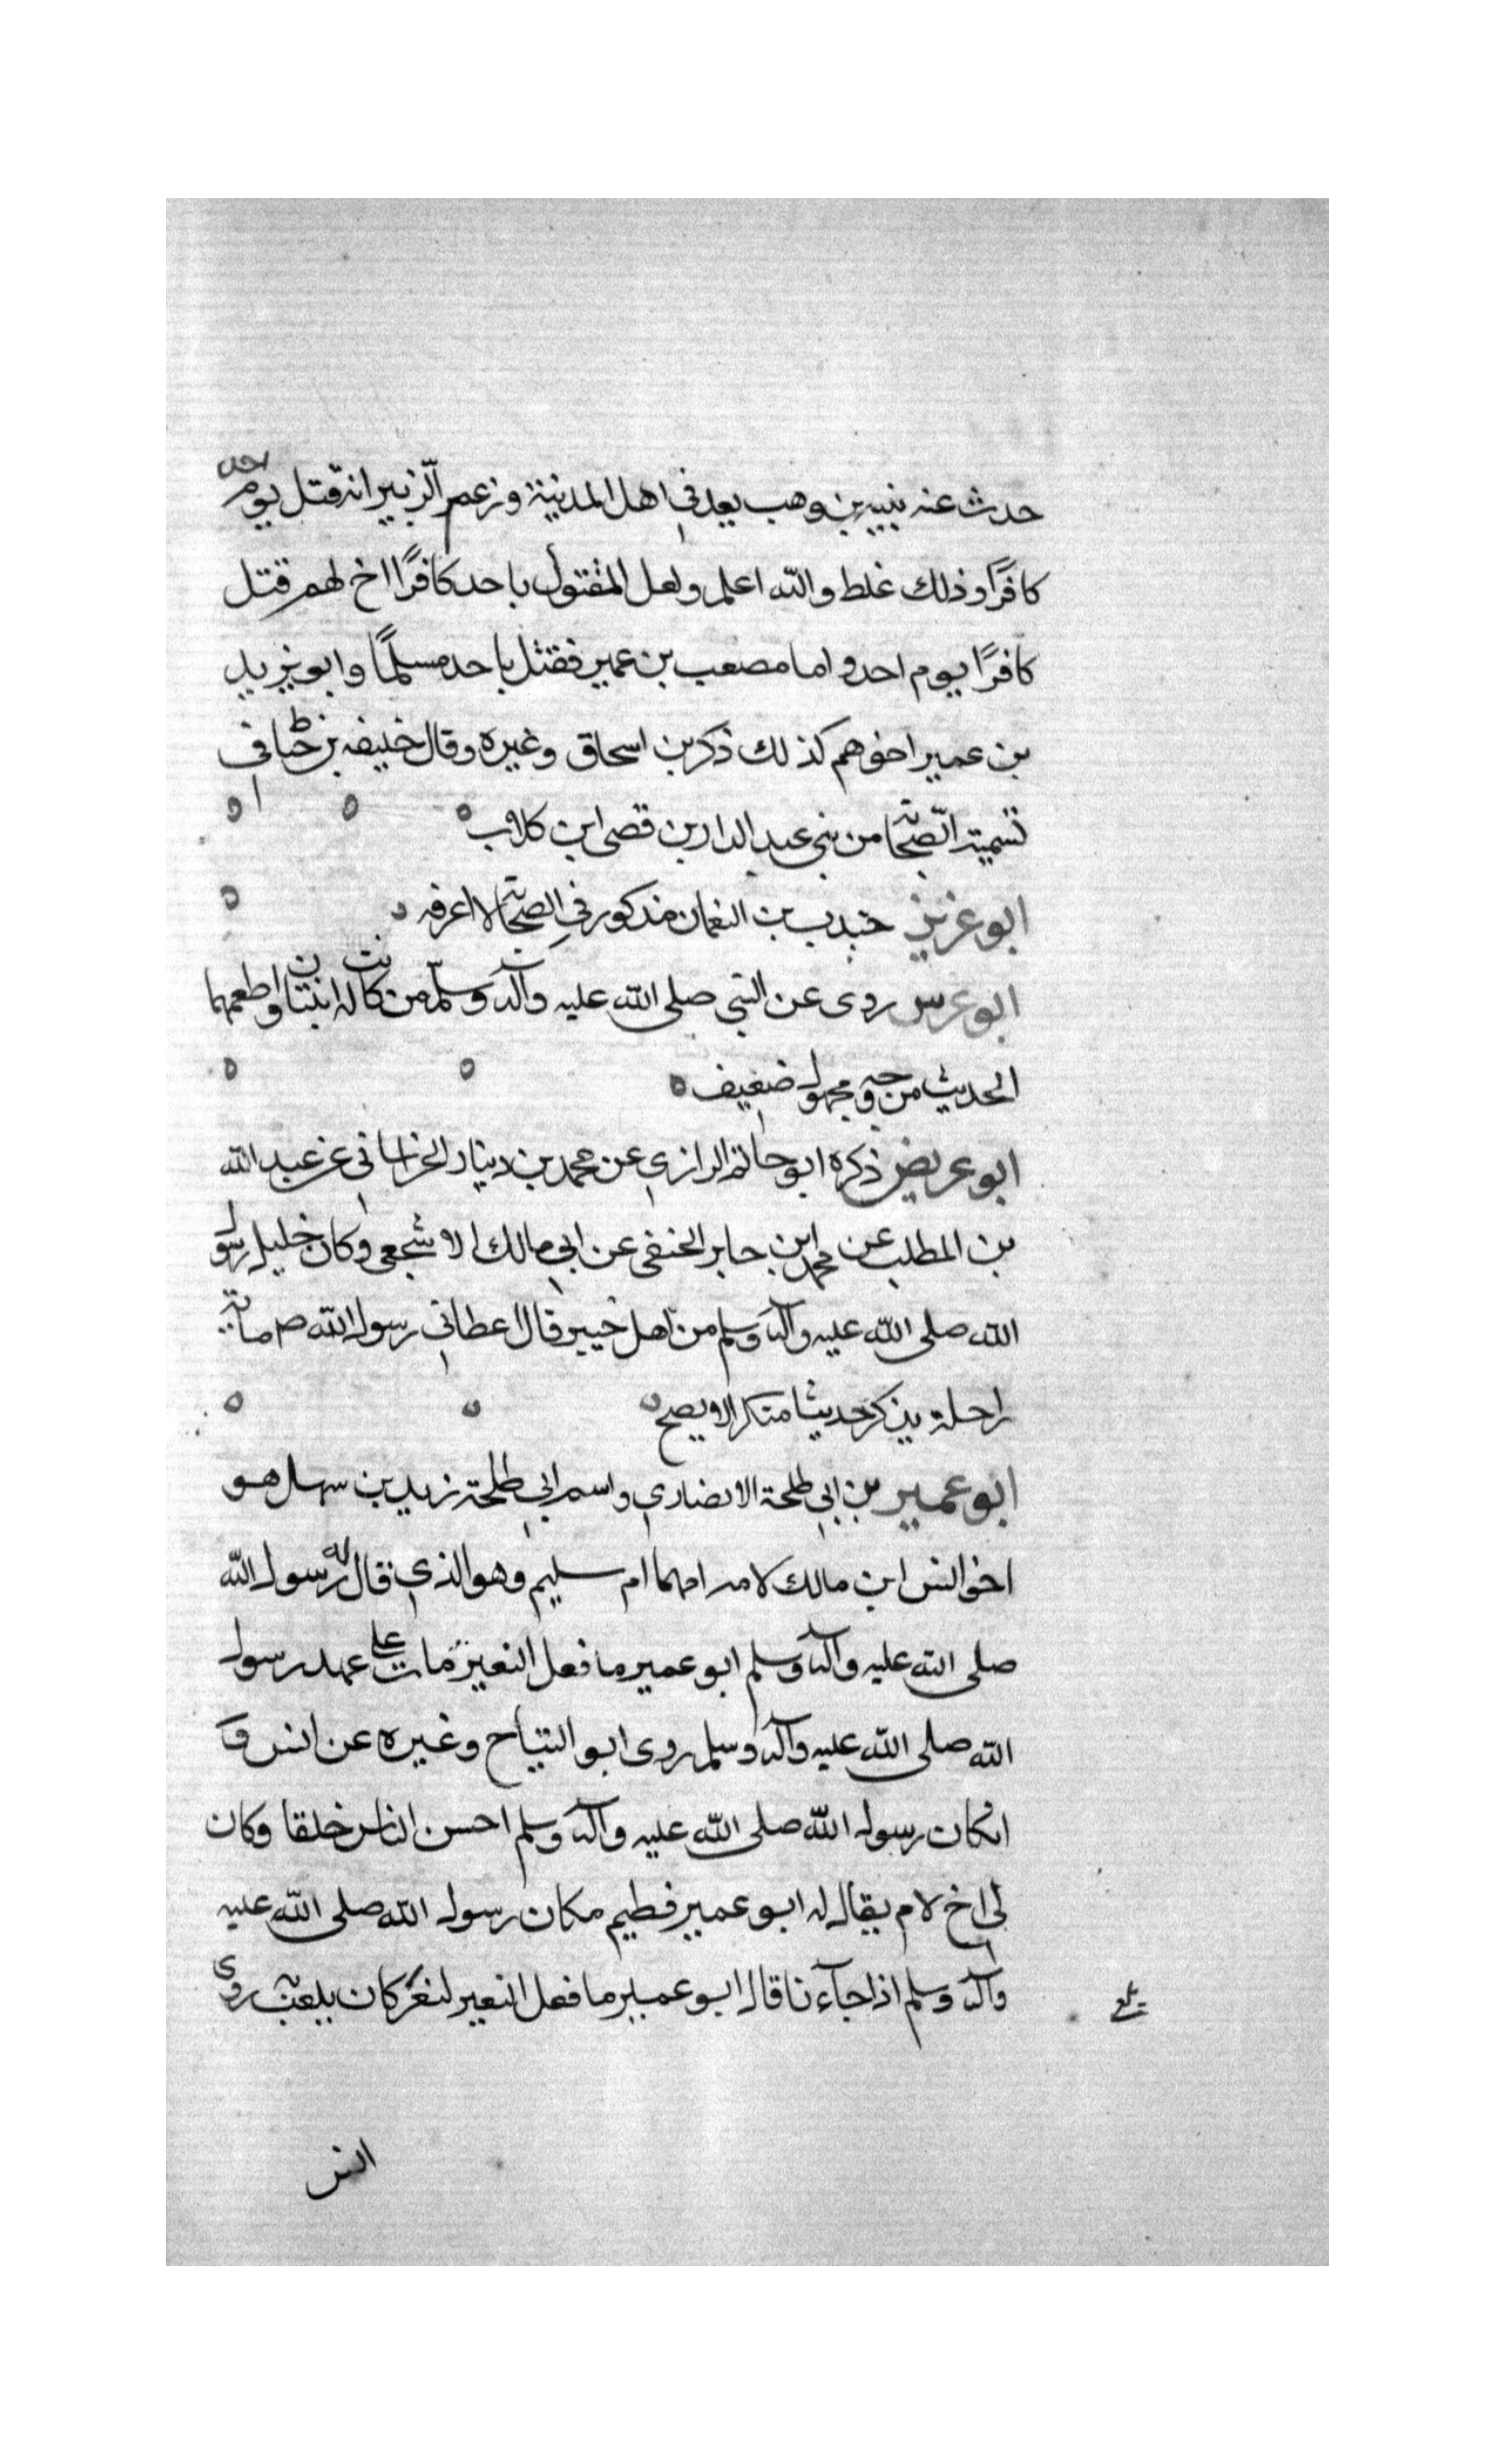 حدث عنه نبيه بن وهب يعد في اهل المدينة وزعم الزبير انه قتل يوم احد
كافرًا وذلك غلط والله اعلم ولعل المقتول باحد كافرًا اخ لهم قتل
كافرًا يوم احد واما مصعب بن عمير فقتل باحد مسلمًا وابو يزيد
بن عمير اخوهم كذلك ذكر بن اسحاق وغيره وقال خليفه بن خياط في
تسمية الصحابة من بني عبد الدار بن قصى ابن كلاب
ابو عزيز جندب بن النعمان مذكور في الصحابة لا اعرفه
ابو عرس روى عن النبي صلى الله عليه وآله وسلم من كانت له ابنتان واطعمهما
الحديث من وجه مجهول ضعيف
ابو عريض ذكره ابو حاتم الرازي عن محمد بن دينار الخراساني عن عبد الله
بن المطلب عن محمد ابن جابر الحنفى عن ابي مالك الاشجعي وكان خليل رسول
الله صلى الله عليه وآله وسلم من اهل خيبر قال اعطاني رسول الله صم مائة
راحلة يذكر حديثا منكرا لا يصح
ابو عمير بن ابي طلحة الانصاري واسم ابي طلحة زيد بن سهل هو
اخو انس ابن مالك لامه امهما ام سليم وهو الذي قال له رسول الله
صلى الله عليه وآله وسلم ابو عمير ما فعل النغير مات على عهد رسول
الله صلى الله عليه وآله وسلم روى ابو التياح وغيره عن انس ق
انكان رسول الله صلى الله عليه وآله وسلم احسن الناس خلقا وكان
لى اخ لام يقال له ابو عمير فطيم مكان رسول الله صلى الله عليه
وآله وسلم اذا جآء نا قال ابو عمير ما فعل النغير لنغر كان يلعب به روى
انس